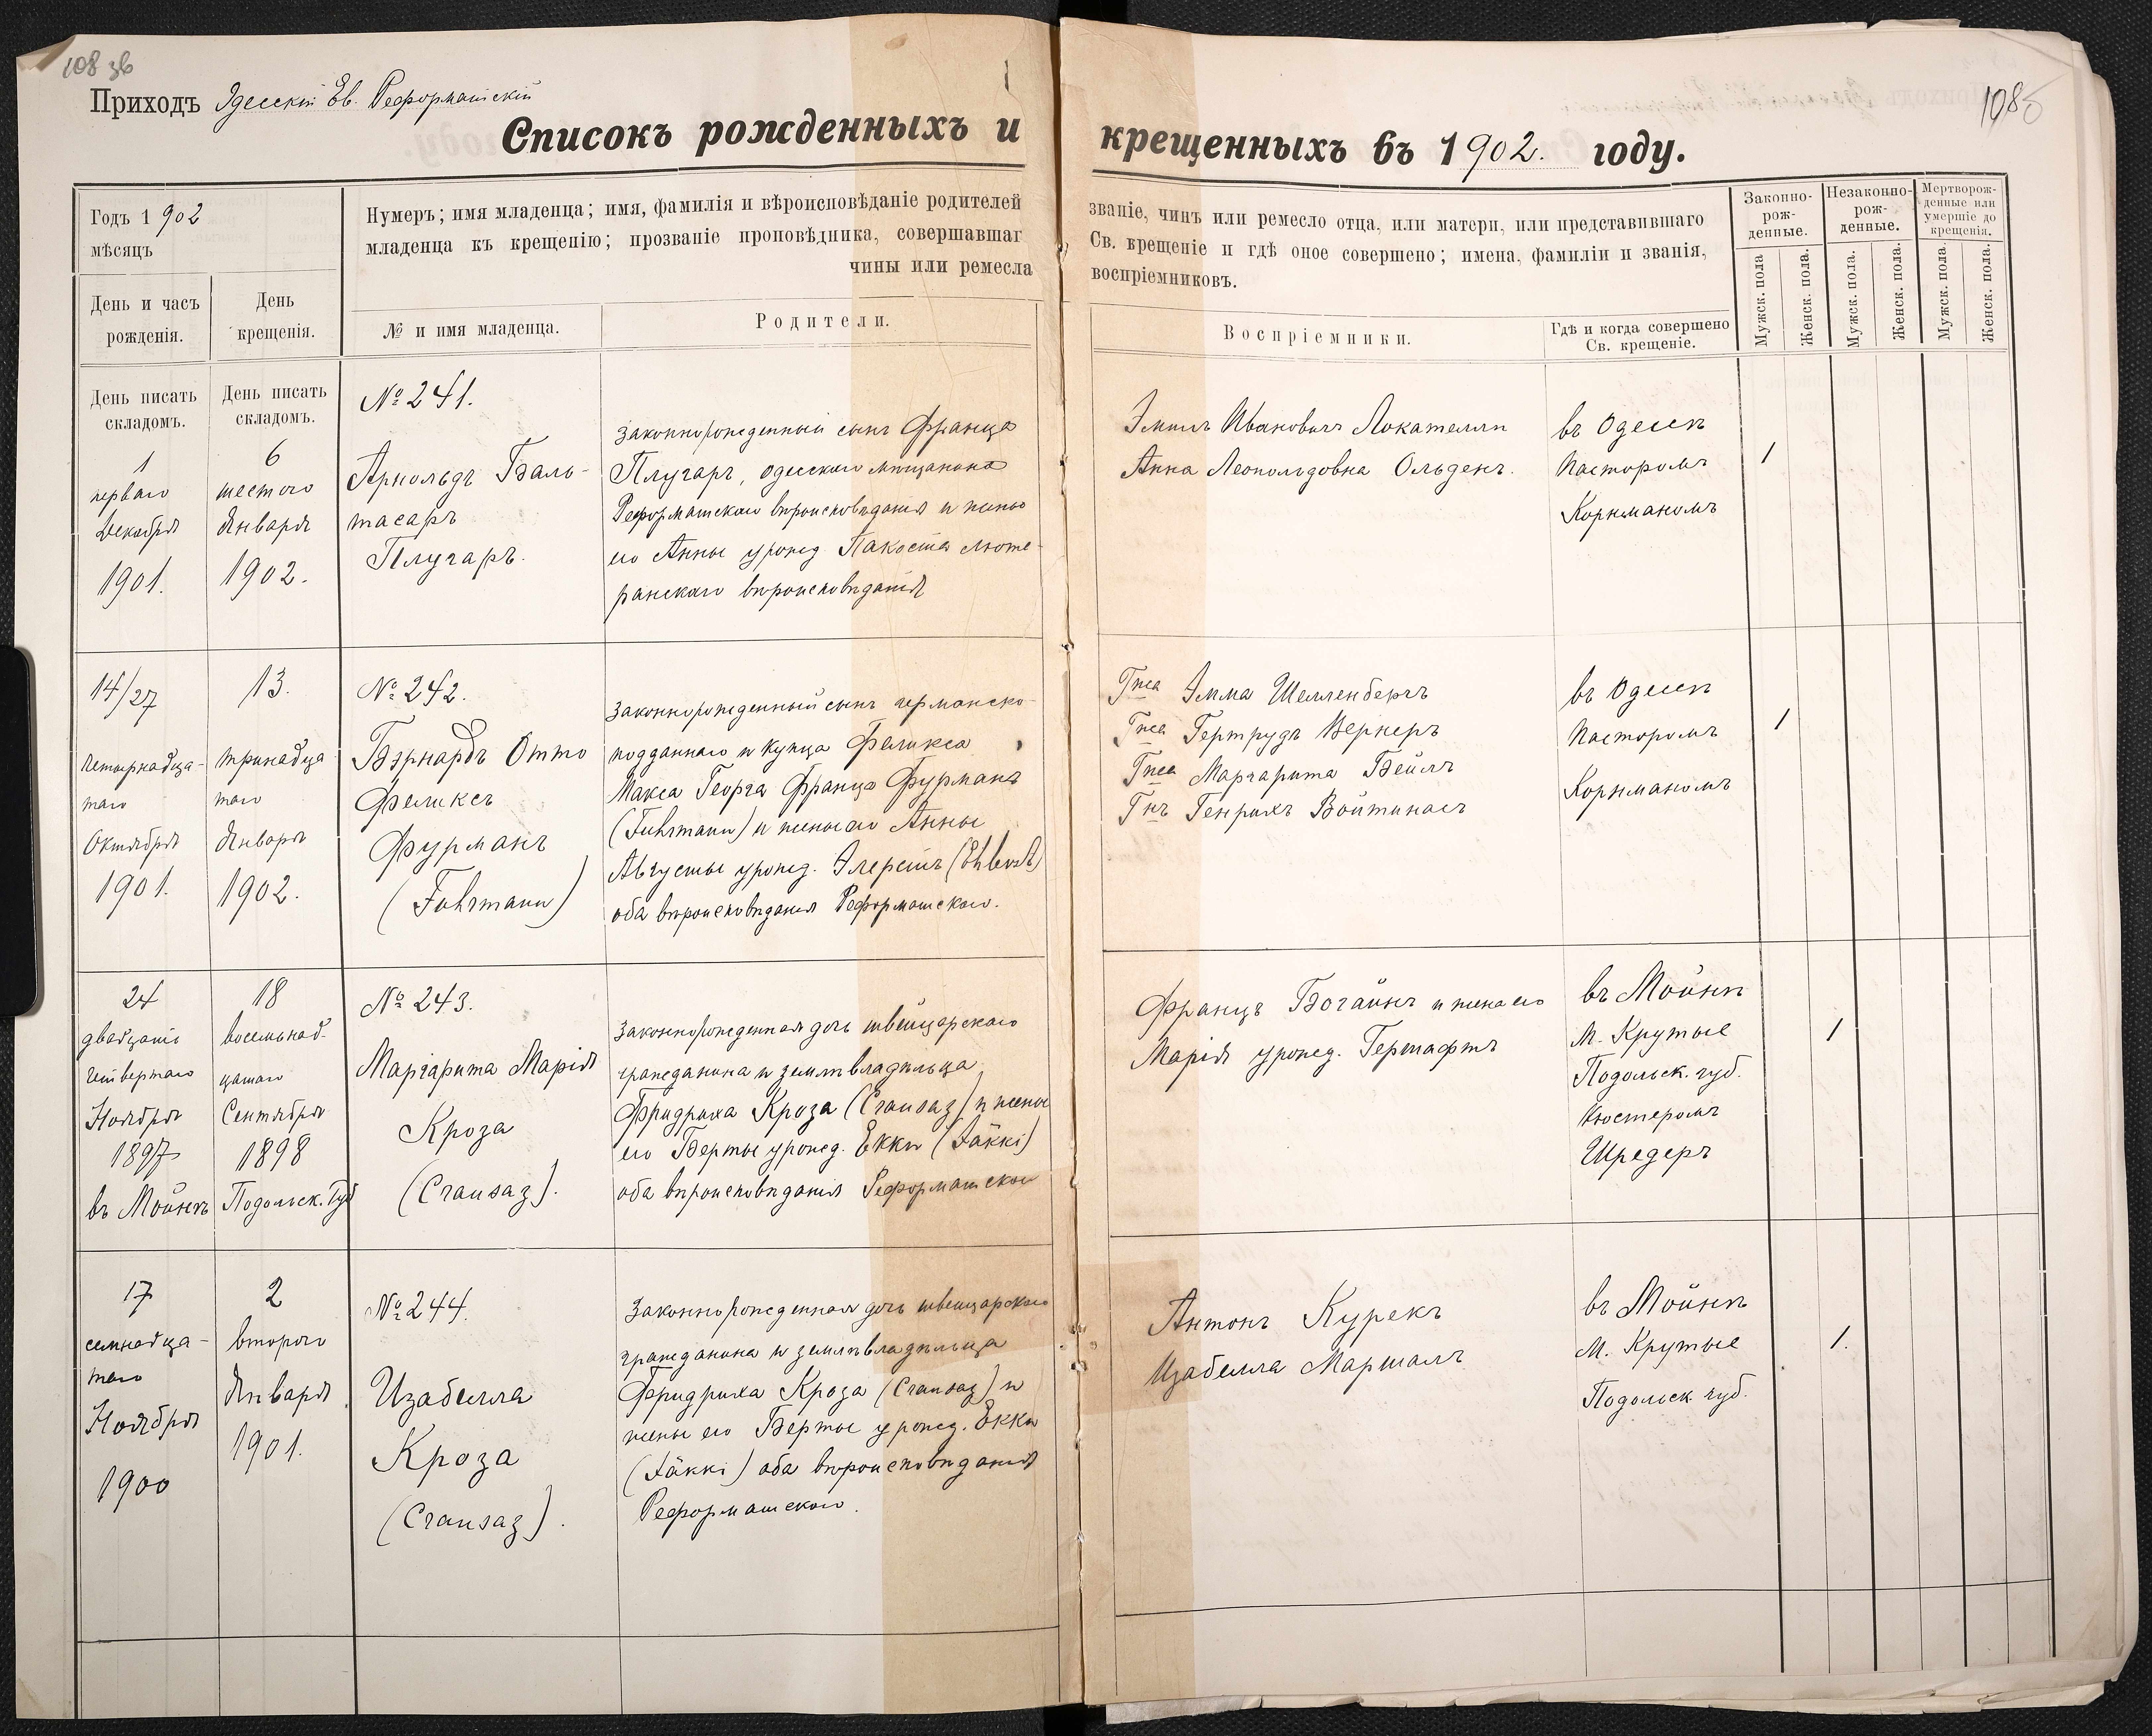 108 зв
Приходъ Одесскій Ев. Реформатскій
1085
Списокъ рожденныхъ и крещенныхъ въ 1902. году.
Годъ 1902
мѣсяцъ
День и часъ
рожденія.
День
крещенія.
Нумеръ; имя младенца; имя, фамилія и вѣроисповѣданіе родителей
младенца къ крещенію; прозваніе проповѣдника, совершавшаг
чины или ремесла
№ и имя младенца.
Родители.
званіе, чинъ или ремесло отца, или матери, или представившаго
Св. крещеніе и гдѣ оное совершено; имена, фамиліи и званія,
воспріемниковъ.
Воспріемники.
Гдѣ и когда совершено
Св. крещеніе.
Законно-
рож-
денные.
Незаконно-
рож-
денные.
Мертворож-
денные или
умершіе до
крещенія.
Мужск. пола
Женск. пола.
Мужск. пола.
Женск. пола.
Мужск. пола
Женск. пола.
День писать
складомъ.
День писать
складомъ.
1
перваго
Декабря
1901.
6
шестого
Января
1902.
№ 241.
Арнольдъ Баль-
тасаръ
Плугаръ.
Законнорожденный сынъ Франца
Плугаръ, одесскаго мѣщанина
Реформатскаго вѣроисповѣданія и жены
его Анны урожд. Пакоста люте-
ранскаго вѣроисповѣданія
Эмиль Ивановичъ Локателли
Анна Леопольдовна Ольденъ.
въ Одессѣ
Пасторомъ
Корнманомъ
1
14/27
четырнадца-
таго
Октября
1901.
13.
тринадца
таго
Января
1902.
№ 242.
Бэрнардъ Отто
Феликсъ
Фурманъ
(Fuhrmann)
Законнорожденный сынъ германско-
подданнаго и купца Феликса
Макса Георга Франца Фурмана
(Fuhrmann) и жены его Анны
Августы урожд. Элерстъ (Ehlerst)
оба вѣроисповѣданія Реформатскаго.
Гжа Эмма Шелленбергъ
Гжа Гертрудъ Вернеръ
Гжа Маргарита Бейль
Гнъ Генрихъ Войтинасъ
въ Одессѣ
Пасторомъ
Корнманомъ
1
24
двадцать
четвертаго
Ноября
1897
въ Мойнѣ
18
восемьнад-
цатаго
Сентября
1898
Подольск. Губ
№ 243.
Маргарита Марія
Кроза
(Crausaz).
Законнорожденная дочь швейцарскаго
гражданина и землевладѣльца
Фридриха Кроза (Crausaz) и жены
его Берты урожд. Екки (Jäkki)
оба вѣроисповѣданія Реформатскаго
Францъ Богайнъ и жена его
Марія урожд. Гершафтъ
въ Мойнѣ
М. Крутые
Подольск. губ.
Кюстеромъ
Шредеръ
1
17
семнадца-
таго
Ноября
1900
2
второго
Января
1901.
№ 244.
Изабелла
Кроза
(Crausaz).
Законнорожденная дочь швейцарскаго
гражданина и землевладѣльца
Фридриха Кроза (Crausaz) и
жены его Берты урожд. Екки
(Jäkki) оба вѣроисповѣданія
Реформатскаго.
Антонъ Курекъ
Изабелла Маршалъ
въ Мойнѣ
М. Крутые
Подольск губ.
1.